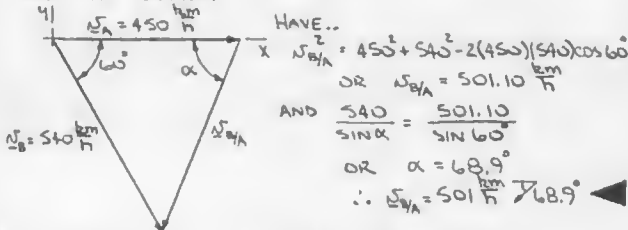 y
v_A = 450 km/h
x
60°
α
v_B = 540 km/h
v_B/A
HAVE..
v²_B/A = 450² + 540² - 2(450)(540)cos60°
OR v_B/A = 501.10 km/h
AND 540/SIN α = 501.10/SIN 60°
OR α = 68.9°
∴ v_B/A = 501 km/h 68.9°